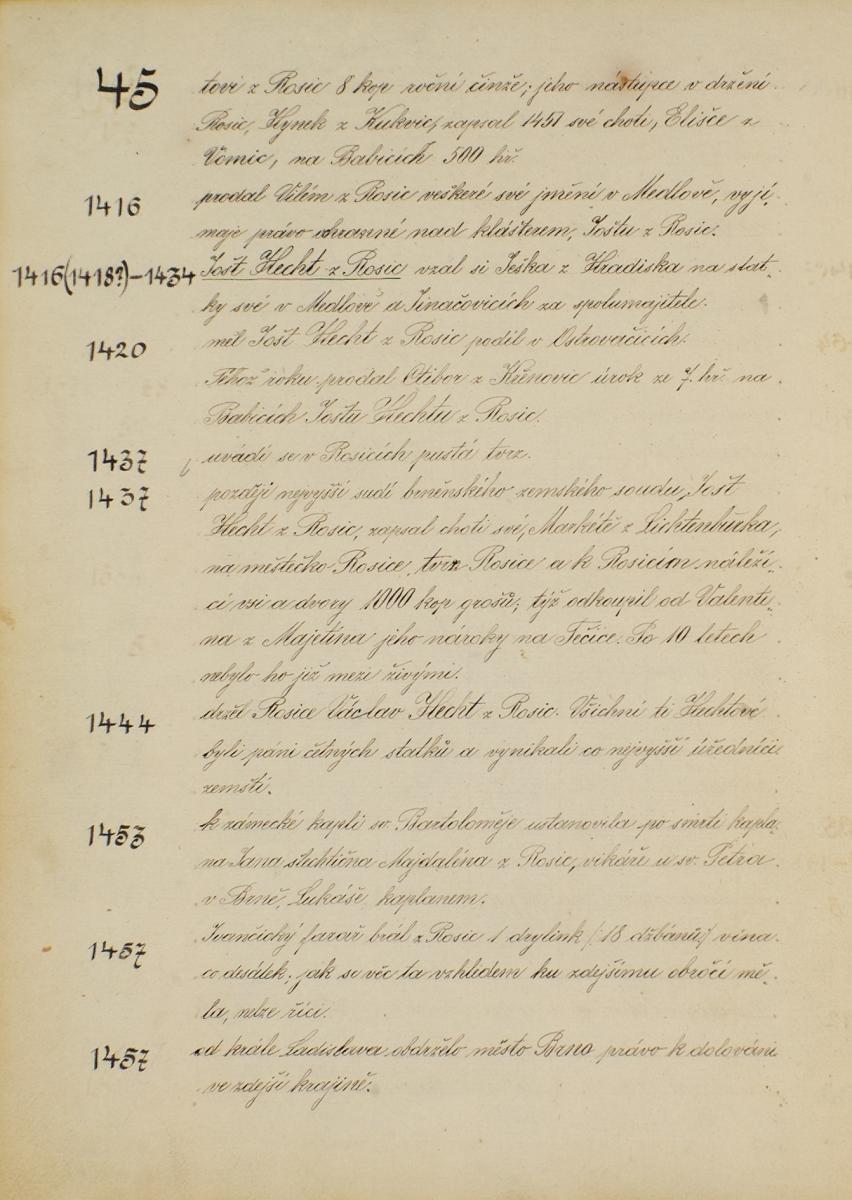 45 tovi z Rosic 8 kop roční činže; jeho nástupce v držení
Rosic, Hynek z Kukvic, zapsal 1451 své choti, Elišce z
Vomic, na Babicích 500 hř.
1416 prodal Vilém z Rosic veškeré své jmění v Medlově, vyjí-
maje právo ochranné nad klášterem, Joštu z Rosic.
1416(1418?)–1434 Jošt Hecht z Rosic vzal si Ješka z Hradiska na stat-
ky své v Medlově a Jinačovicích za spolumajitele.
1420 měl Jošt Hecht z Rosic podíl v Ostrovačicích.
Téhož roku prodal Ctibor z Křinovic úrok ze 7 hř. na
Babicích Joštu Hechtu z Rosic.
1437 uvádí se v Rosicích pustá tvrz.
1437 později nejvyšší sudí brněnského zemského soudu, Jošt
Hecht z Rosic, zapsal choti své, Markétě z Lichtenburka,
na městečko Rosice, tvrz Rosice a k Rosicím náleží-
cí vsi a dvory 1000 kop grošů; týž odkoupil od Valenti-
na z Majetína jeho nároky na Tečice. Po 10 letech
nebylo ho již mezi živými.
1444 držel Rosice Václav Hecht z Rosic. Všichni ti Hechtové
byli páni četných statků a vynikali co nejvyšší úředníci
zemští.
1453 k zámecké kapli sv. Bartoloměje ustanovila po smrti kapla-
na Jana šlechtična Majdaléna z Rosic, vikáře u sv. Petra
v Brně, Lukáše kaplanem.
1457 Ivančický farář bral z Rosic 1 drylink /:18 džbánů:/ vína
co desátek; jak se věc ta vzhledem ku zdejšímu obročí mě-
la, nelze říci.
1457 od krále Ladislava obdrželo město Brno právo k dolování
ve zdejší krajině.